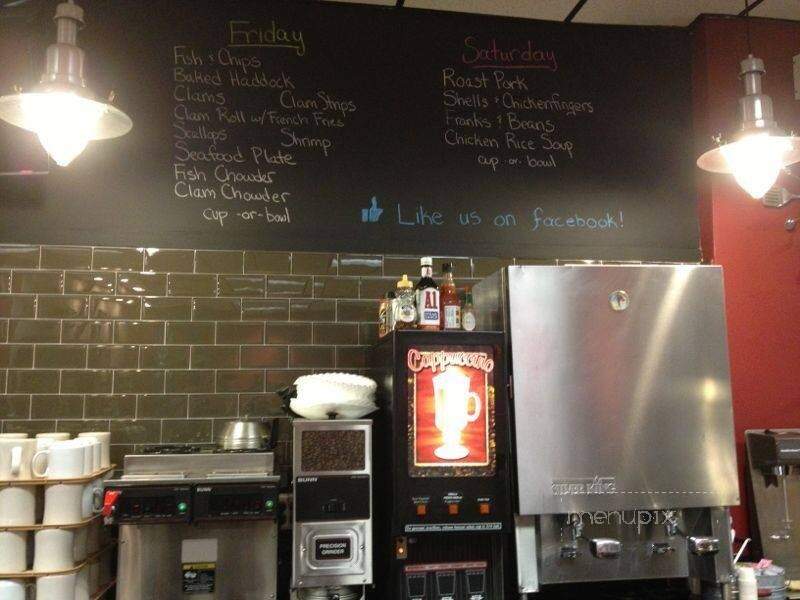 Friday
Fish & Chips
Baked Haddock
Clams Clam Strips
Clam Roll w/ French Fries
Scallops Shrimp
Seafood Plate
Fish Chowder
Clam Chowder
cup -or- bowl
Saturday
Roast Pork
Shells & Chickenfingers
Franks & Beans
Chicken Rice Soup
cup -or- bowl
Like us on facebook!
A1
Cappuccino
BUNN
BUNN
PRECISION
GRINDER
SILVER KING
menupix